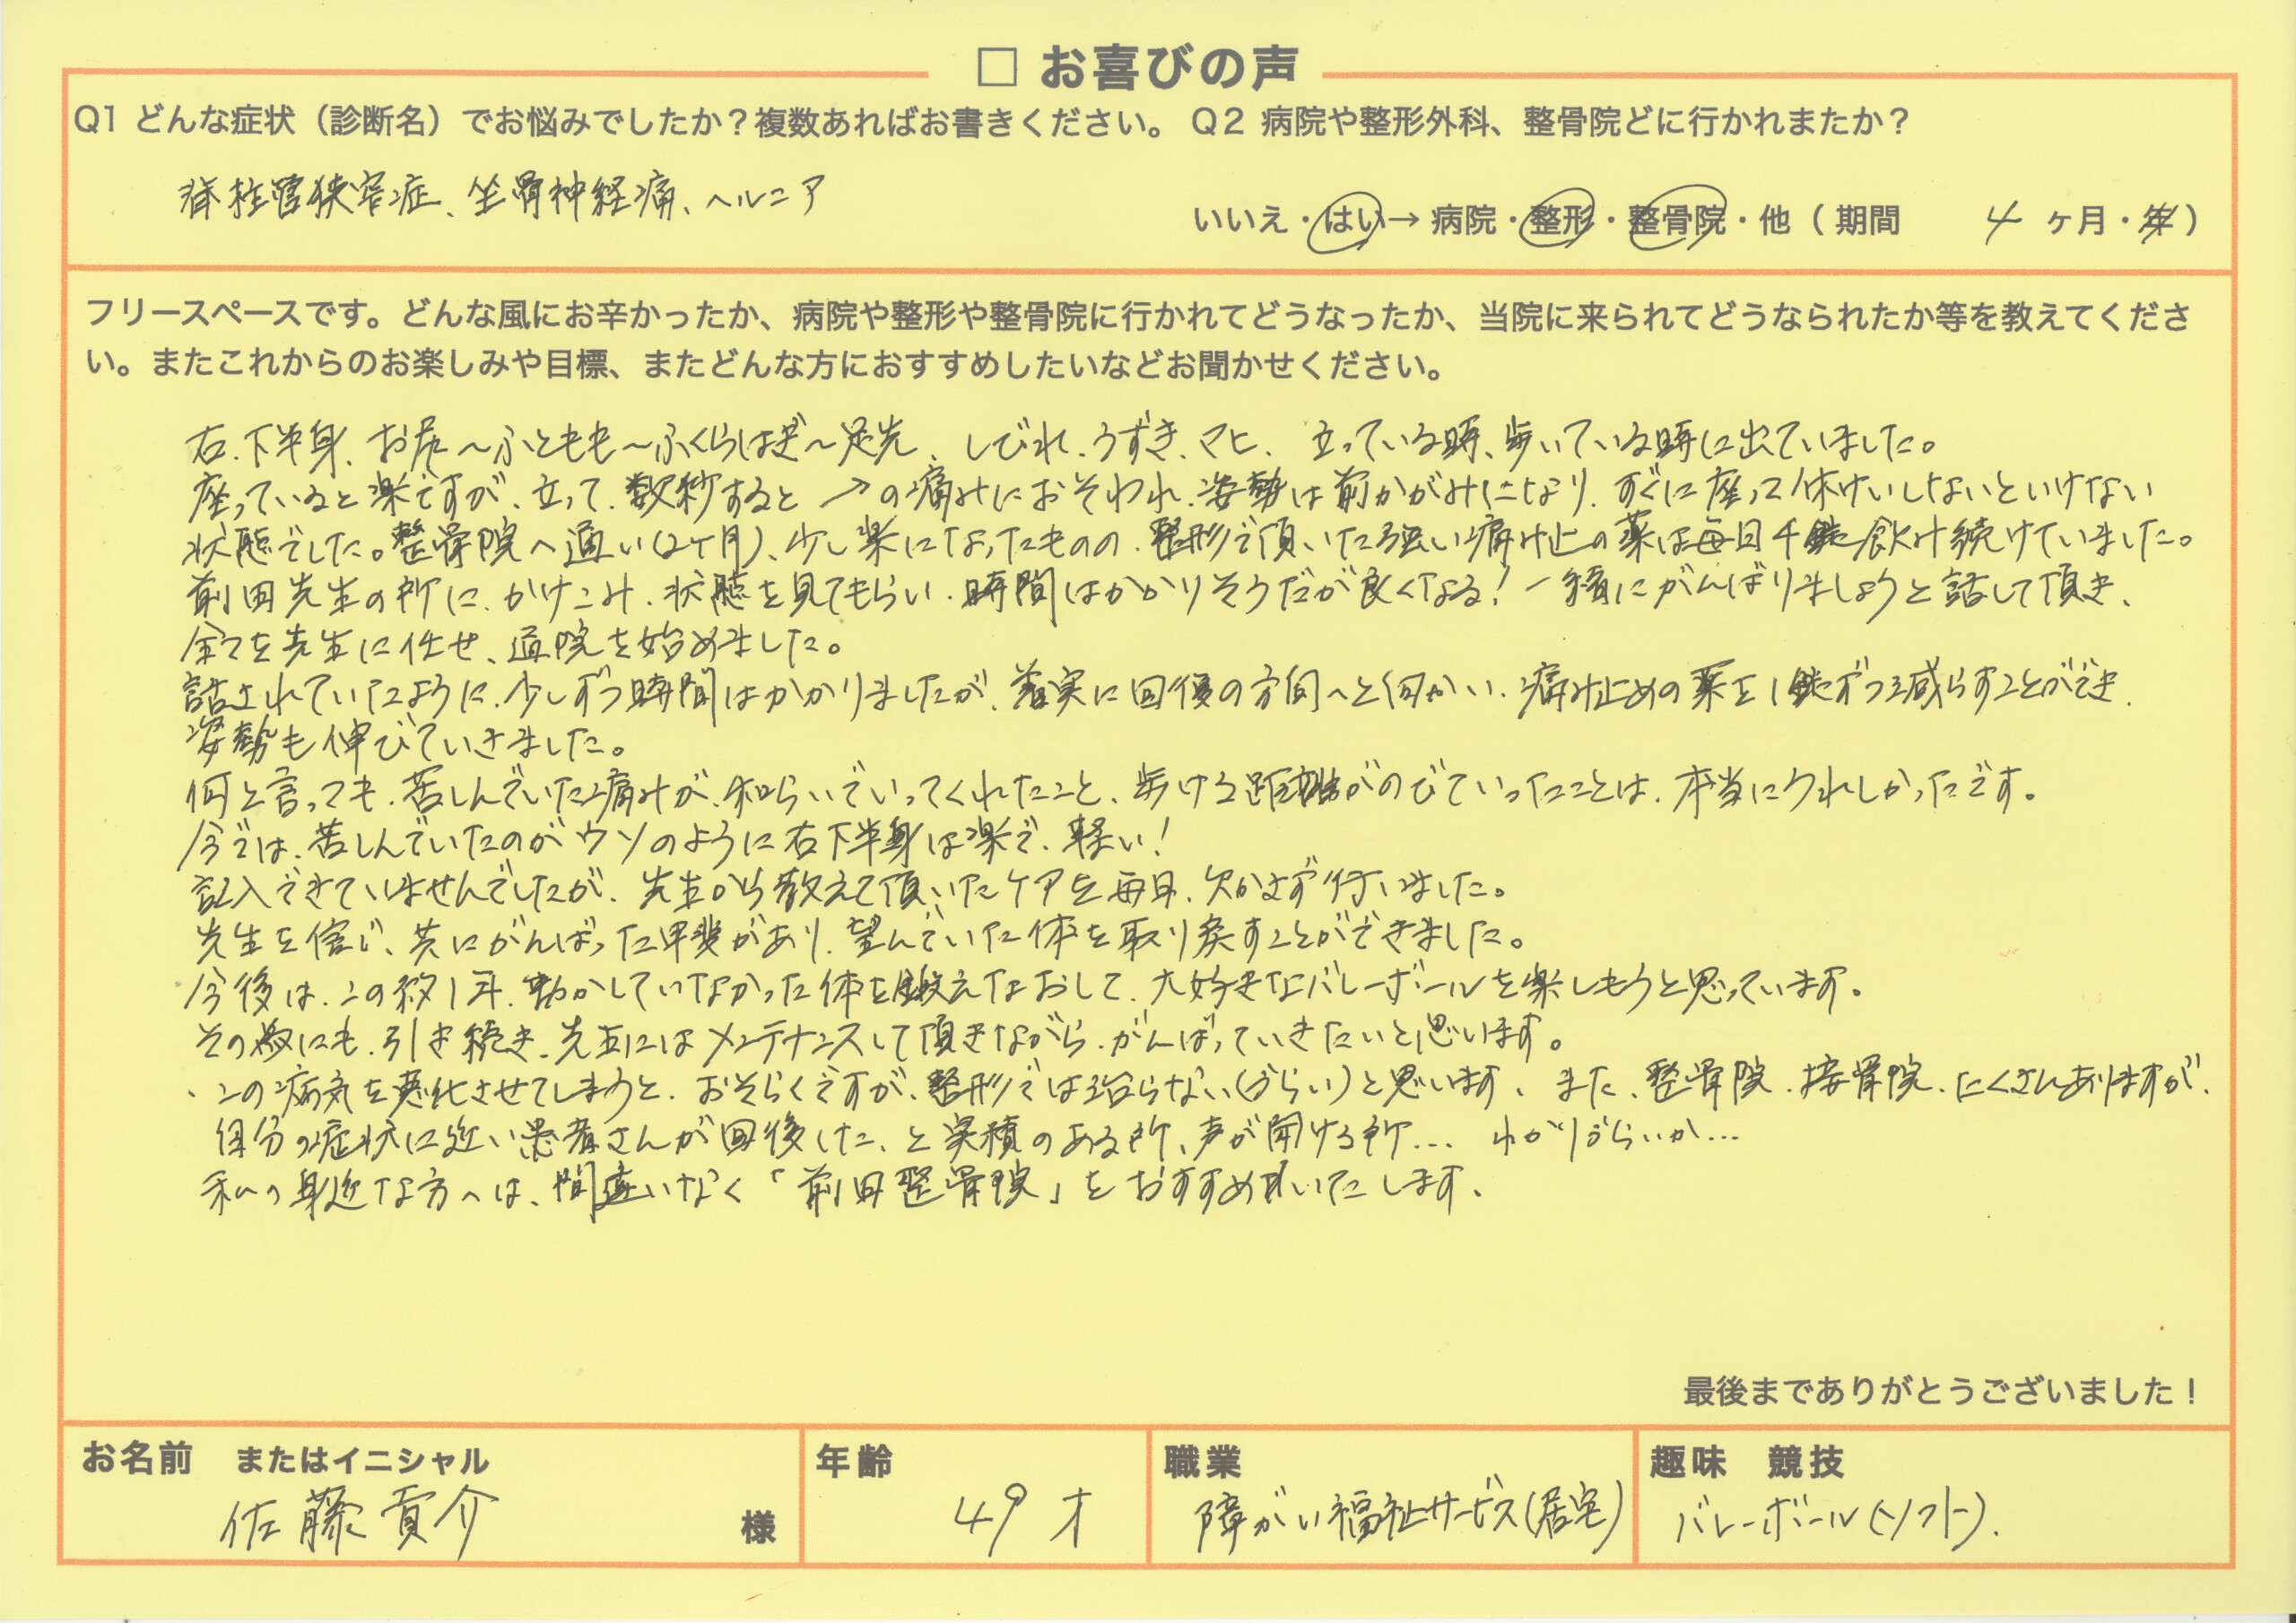 □ お喜びの声
Q1 どんな症状（診断名）でお悩みでしたか？複数あればお書きください。 Q2 病院や整形外科、整骨院どに行かれまたか？
脊柱管狭窄症、坐骨神経痛、ヘルニア
いいえ・はい→ 病院・整形・整骨院・他（ 期間 4 ヶ月・年）
フリースペースです。どんな風にお辛かったか、病院や整形や整骨院に行かれてどうなったか、当院に来られてどうなられたか等を教えてくださ
い。またこれからのお楽しみや目標、またどんな方におすすめしたいなどお聞かせください。
右、下半身、お尻～ふともも～ふくらはぎ～足先、しびれ、うずき、マヒ、立っている時、歩いている時に出ていました。
座っていると楽ですが、立って、数秒すると↗の痛みにおそわれ、姿勢は前かがみになり、すぐに座って休けいしないといけない
状態でした。整骨院へ通い(2ケ月)、少し楽になったものの、整形で頂いた強い痛み止の薬は毎日4錠飲み続けていました。
前田先生の所に、かけこみ、状態を見てもらい、時間はかかりそうだが良くなる！一緒にがんばりましょうと話して頂き、
全てを先生に任せ、通院を始めました。
話されていたように、少しずつ時間はかかりましたが、着実に回復の方向へと向かい、痛み止めの薬を1錠ずつ減らすことができ、
姿勢も伸びていきました。
何と言っても、苦しんでいた痛みが、和らいでいってくれたこと、歩ける距離がのびていったことは、本当にうれしかったです。
今では、苦しんでいたのがウソのように右下半身は楽で、軽い！
記入できていませんでしたが、先生から教えて頂いたケアを毎日、欠かさず行いました。
先生を信じ、共にがんばった甲斐があり、望んでいた体を取り戻すことができました。
今後は、この約1年、動かしていなかった体を鍛えなおして、大好きなバレーボールを楽しもうと思っています。
その為にも、引き続き、先生にはメンテナンスして頂きながら、がんばっていきたいと思います。
・この病気を悪化させてしまうと、おそらくですが、整形では治らない(づらい)と思います、また、整骨院、接骨院、たくさんありますが、
自分の症状に近い患者さんが回復した、と実積のある所、声が聞ける所… わかりづらいか…
私の身近な方へは、間違いなく「前田整骨院」をおすすめいたします、
最後までありがとうございました！
お名前 またはイニシャル
佐藤 貢介 様
年齢
49才
職業
障がい福祉サービス(居宅)
趣味 競技
バレーボール(ソフト).